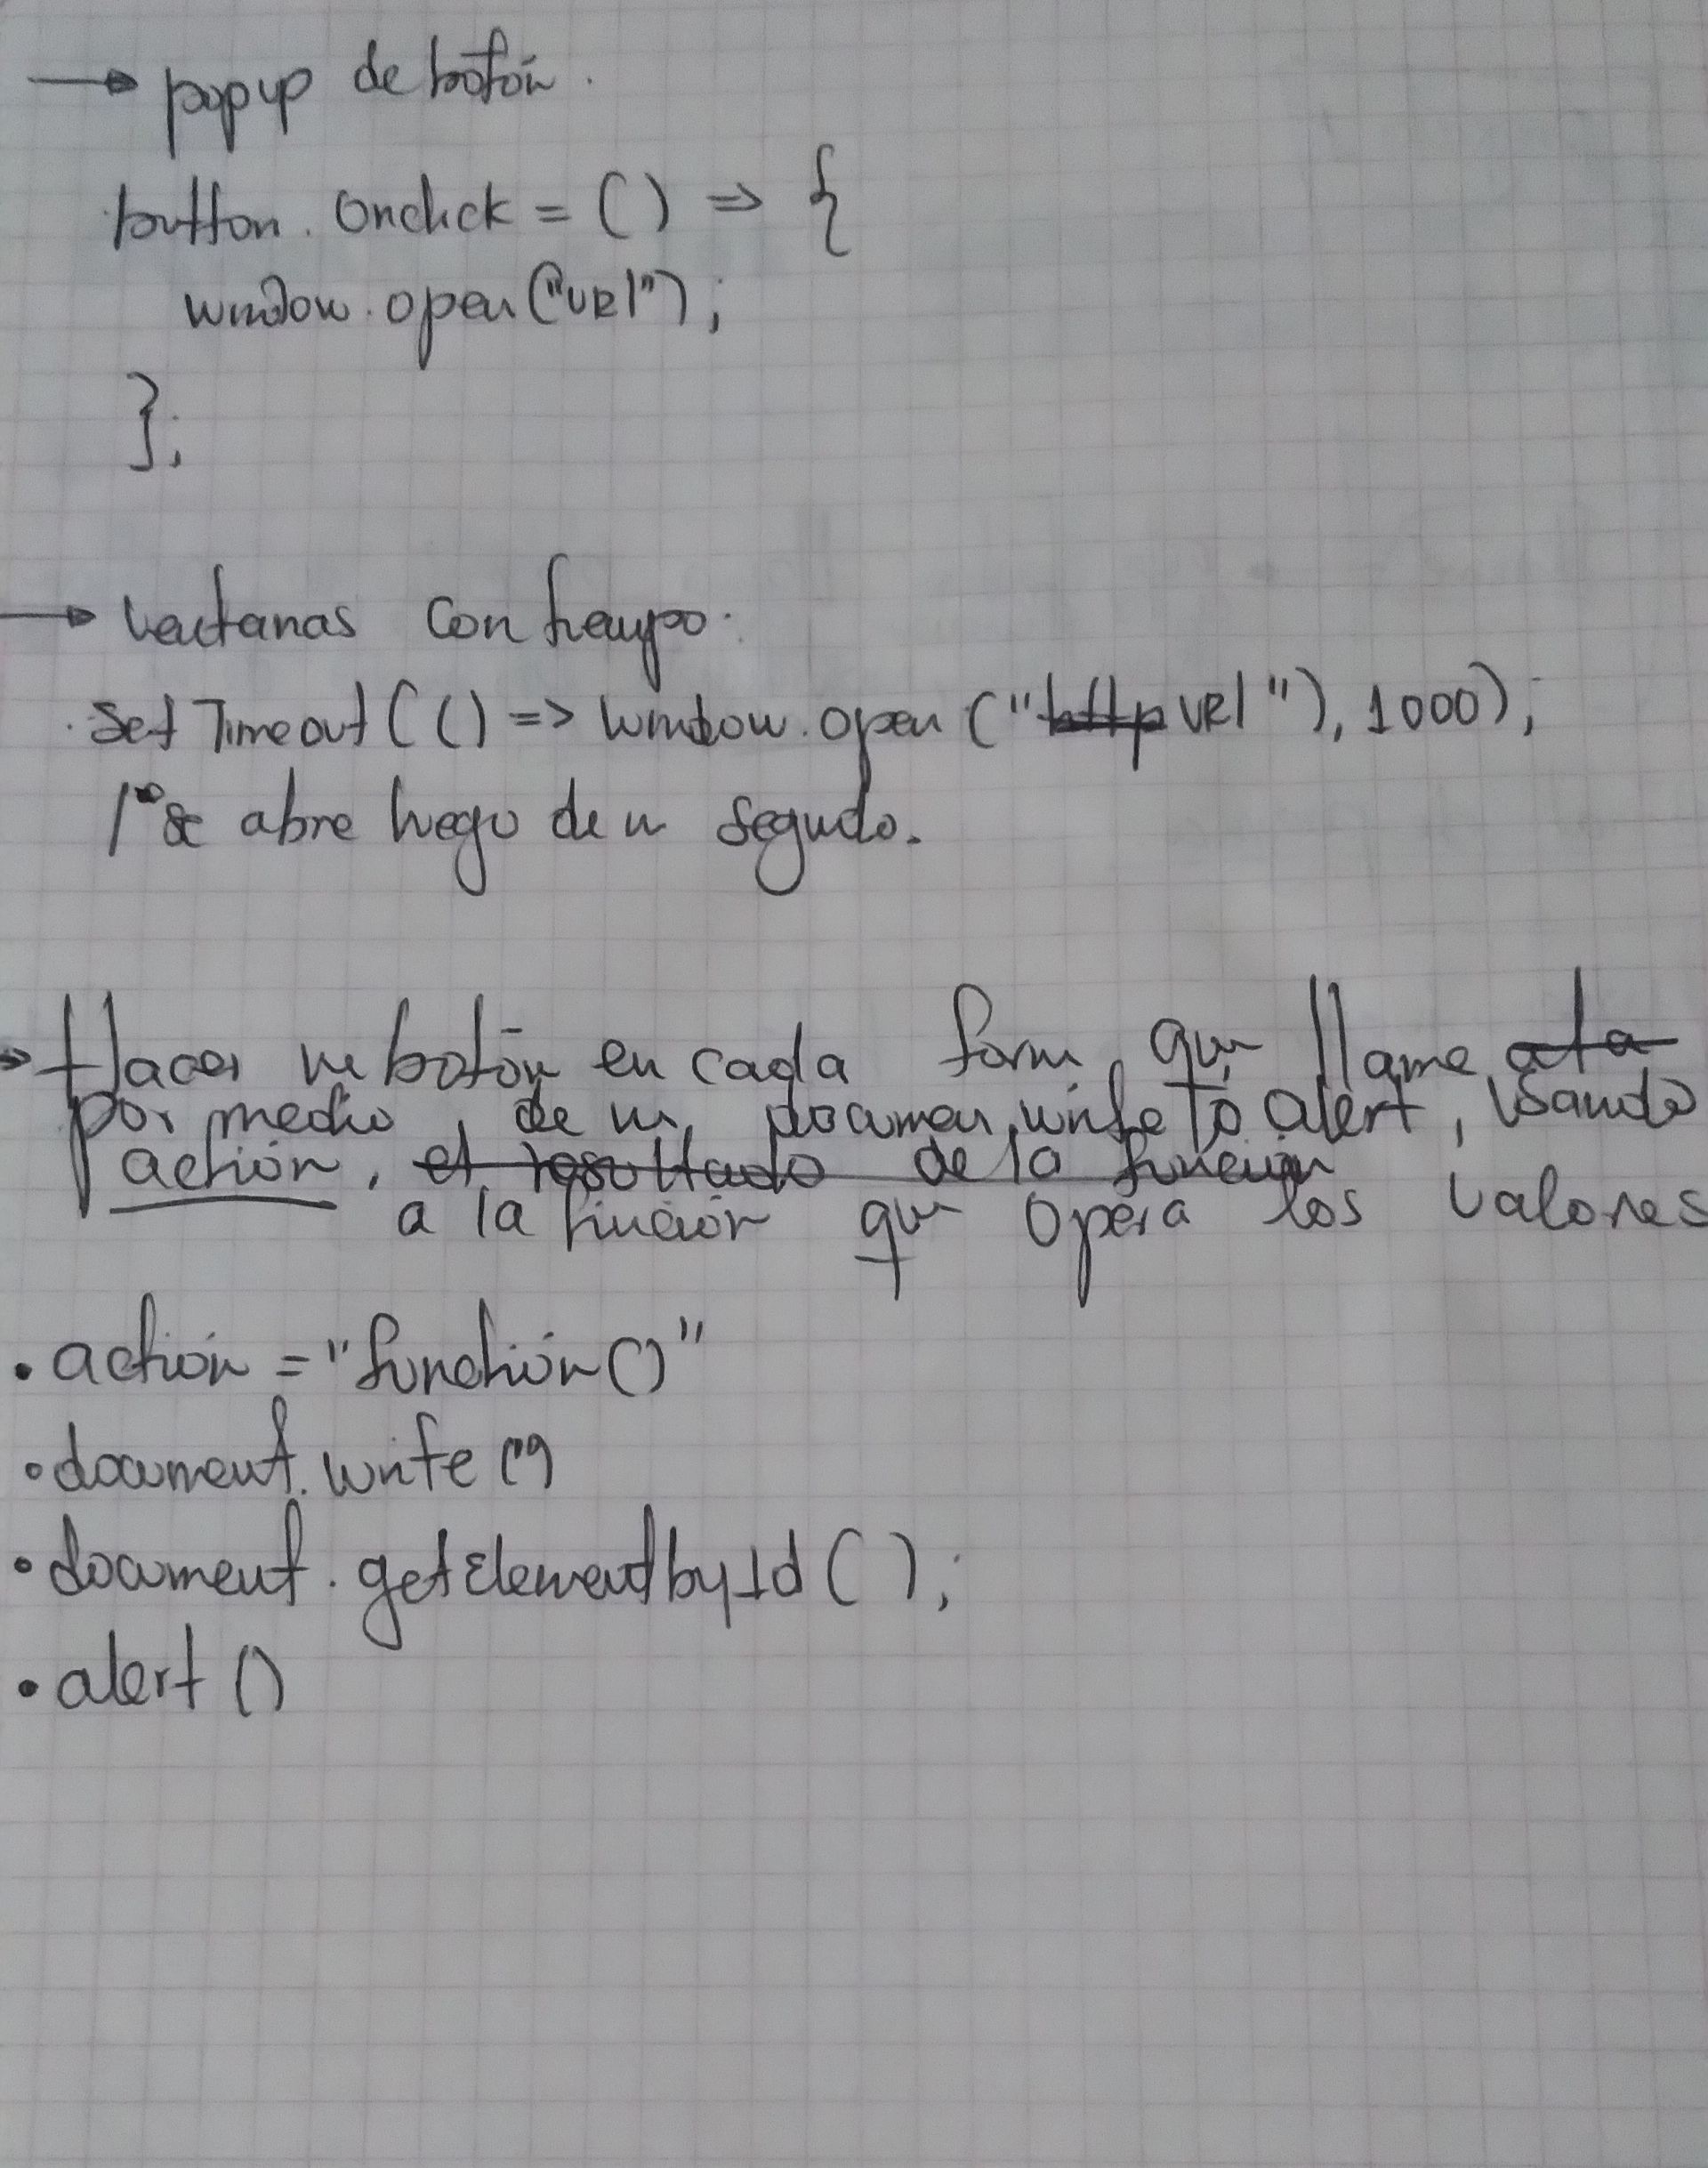 → popup de botón.
button.Onclick = () => {
window.open("URl");
};
→ Ventanas con tiempo.
setTimeout(() => window.open("http URl"), 1000);
se abre luego de un segundo.
→ Hacer un botón en cada form, que llame a la
por medio, de un, documen.write to alert, usando
action, el resultado de la función
a la función que opera los valores
• action = "función()"
• document.write("")
• document.getElementbyId();
• alert()